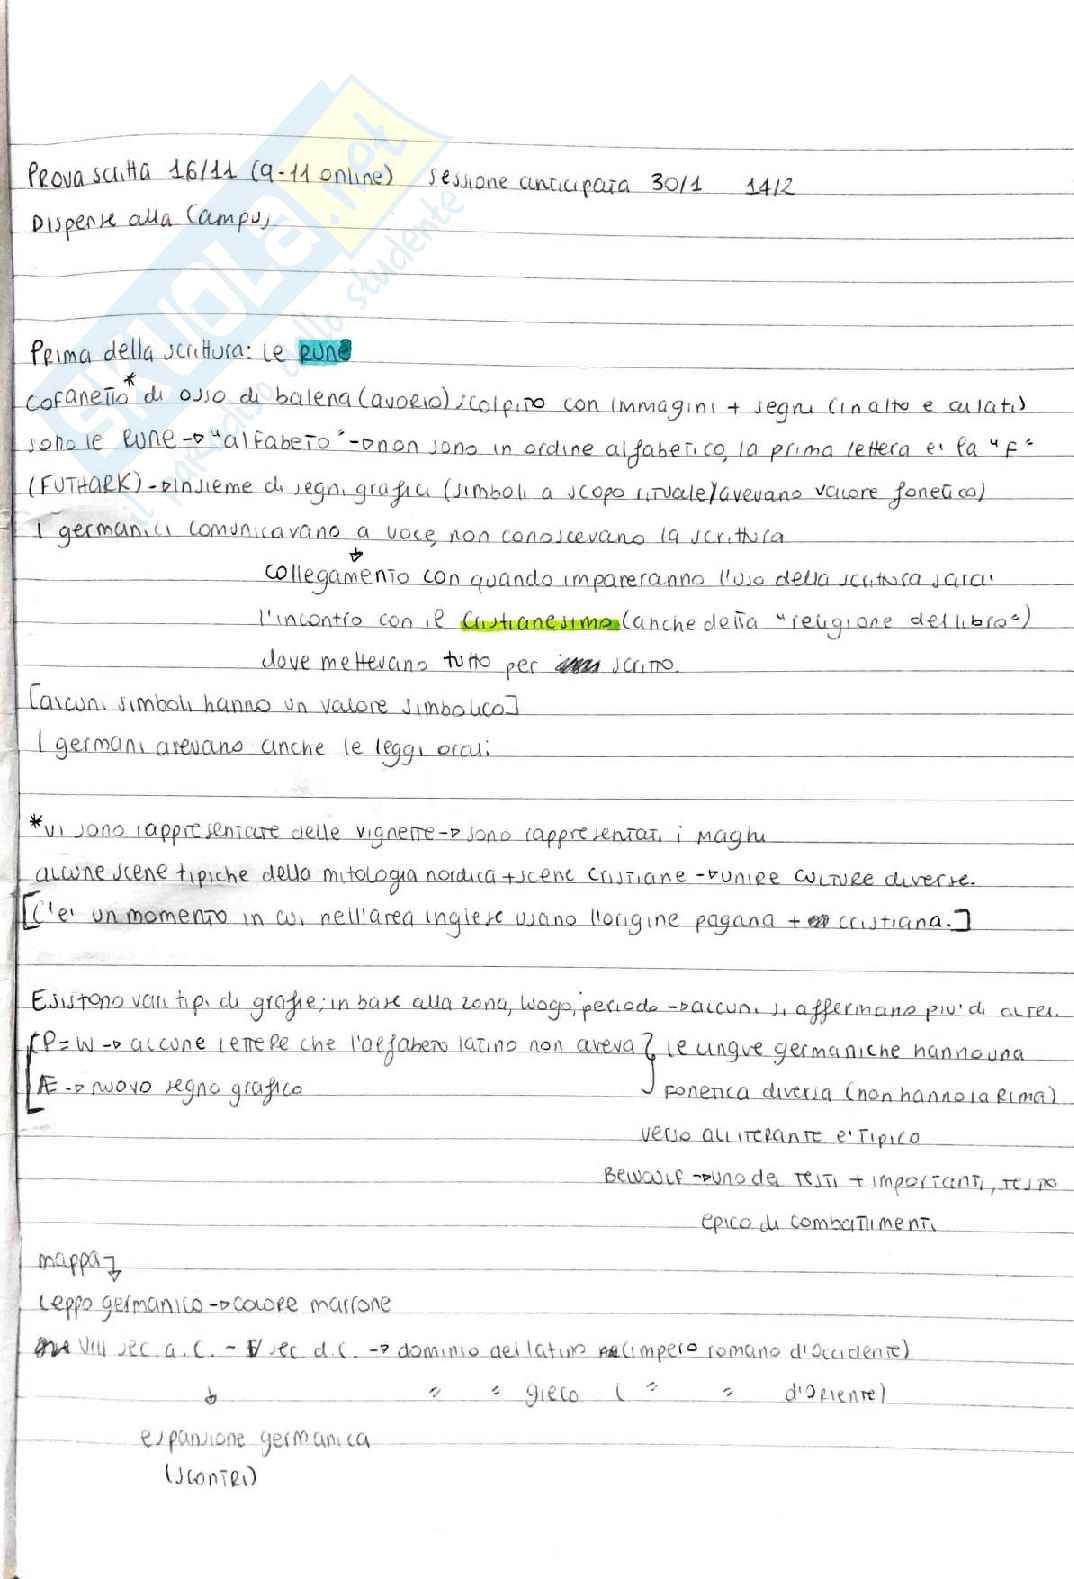 Prova scritta 16/11 (9-11 online) sessione anticipata 30/1 14/2
Dispense alla Campus
SKUOLA.net
il paradiso dello studente
Prima della scrittura: le RUNE
cofanetto* di osso di balena (avorio) scolpito con immagini + segni (in alto e ai lati)
sono le RUNE → "alfabeto" → non sono in ordine alfabetico, la prima lettera e' la "F"
(FUTHARK) → insieme di segni grafici (simboli a scopo rituale/avevano valore fonetico)
I germanici comunicavano a voce, non conoscevano la scrittura
collegamento con quando impareranno l'uso della scrittura sara'
l'incontro con il Cristianesimo (anche detta "religione del libro")
dove mettevano tutto per scritto.
[alcuni simboli hanno un valore simbolico]
I germani avevano anche le leggi orali
*vi sono rappresentate delle vignette → sono rappresentati i Maghi
alcune scene tipiche della mitologia nordica + scene cristiane → unire culture diverse.
[C'e' un momento in cui nell'area inglese usano l'origine pagana + cristiana.]
Esistono vari tipi di grafie; in base alla zona, luogo, periodo → alcuni si affermano piu' di altri.
[P = W → alcune lettere che l'alfabeto latino non aveva } le lingue germaniche hanno una
Æ → nuovo segno grafico fonetica diversa (non hanno la rima)
verso alliterante e' tipico
Bewoulf → uno dei testi + importanti, testo
epico di combattimenti
mappa ↴
Ceppo germanico → colore marrone
VIII sec a.C. - V sec d.C. → dominio del latino (impero romano d'Occidente)
↓ " " greco ( " " d'Oriente)
espansione germanica
(scontri)